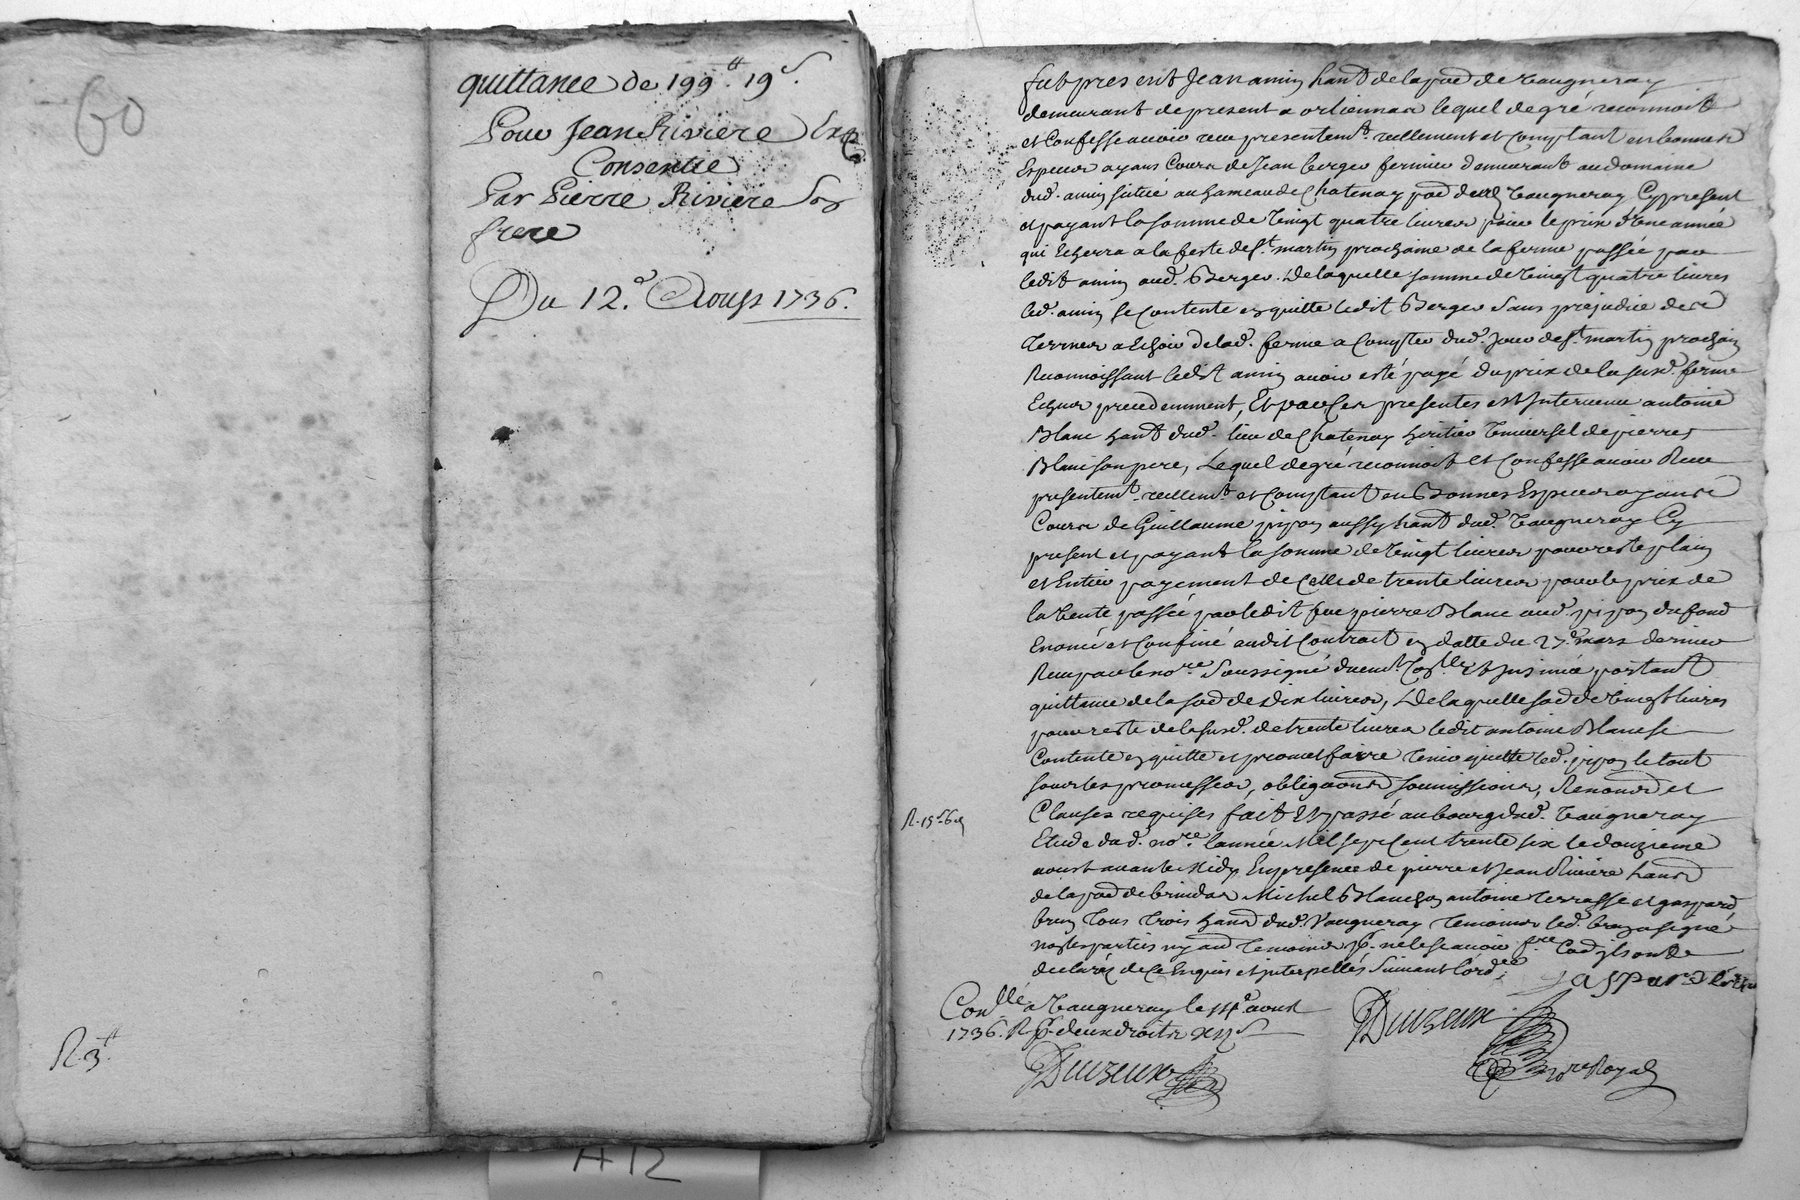 60
quittance de 199ᵗᵗ 19ˢ
Pour Jean Riviere
Consentie
Par Pierre Riviere Son
frere
Du 12.ᵉ Aoust 1736.
R. 3ᵗᵗ
fut present Jean amin hant de la parr de Vaugneray
demeurant de present a orliennas lequel de gré reconnoit
et Confesse avoir receu presentemt. reellement et Comptant en bonnes
Especes ayans Cours de Jean berger fermier demeurant au domaine
dud. amin situé au hameau de Chatenay parr dud Vaugneray Cy present
et payant la somme de Vingt quatre livres pour le prix d'une année
qui Echerra a la feste de St. martin prochaine de la ferme passée par
ledit amin aud. Berger. De laquelle somme de Vingt quatre livres
led. amin se Contente en quitte ledit Berger Sans prejudice des
Termes a Echoir de lad. ferme a Compter dud. Jour de St. martin prochain
Reconnoissant ledit amin avoir esté payé du prix de la susd. ferme
Echeus precedemment, Et par Ces presentes est Intervenu antoine
Blanc hant dud. lieu de Chatenay heritier Universel de pierre
Blanc son pere, Lequel de gré reconnoit et Confesse avoir Receu
presentemt. reellemt. et Comptant en Bonnes Especes ayans
Cours de Guillaume pipon aussy hant dud. Vaugneray Cy
present et payant la somme de Vingt livres pour reste plain
et Entier payement de Celle de trente livres pour le prix de
la Vente passée par ledit feu pierre Blanc aud. pipon du fond
Enoncé et Confiné audit Contrat en datte du 27.ᵉ mars dernier
Receu par le noʳᵉ Soussigné duemt Conllé et Insinué portant
quittance de la sod de Dix livres, De laquelle sod de Vingt livres
pour reste de la susd. de trente livres ledit antoine Blanc se
Contente en quitte et promet faire Tenir quitte led. pipon le tout
sous les promesses, obligaons soumissions, Renonons et
Clauses requises fait Et passé au bourg dud. Vaugneray
Etude dud. noʳᵉ l'année Mil sept Cent trente six le douzieme
aoust avant Midy En presence de pierre et Jean Riviere hans
de la parr de brindas Michel Blanchon antoine Terrasse et gaspard
brun Tous Trois hans dud. Vaugneray Temoins led. brun a signé
non les parties ny aud Temoins pour ne le scavoir
declaréz de Ce Enquis et interpellés Suivant l'ordᶜᵉ
R. 15ˢ 6d
Conˡˡé a Vaugneray le 14ᵉ aoust
1736. R. pr. deux droits
Duzeux
Duzeux
noʳᵉ Royal